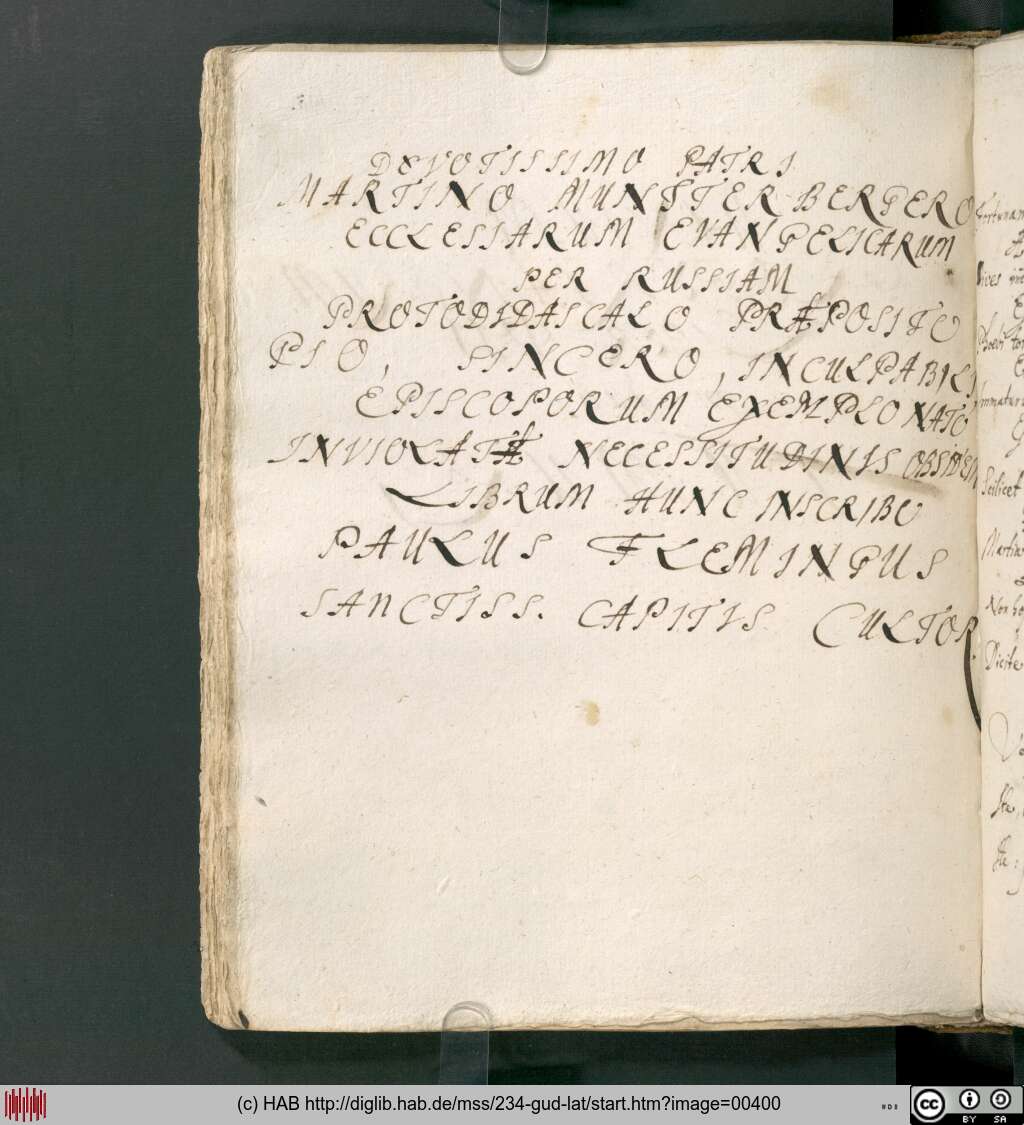 DEVOTISSIMO PATRI
MARTINO MUNSTER-BERGERO
ECCLESIARUM EVANGELICARUM
PER RUSSIAM
PROTODIDASCALO PRÆPOSITO
PIO, SINCERO, INCULPABILI
EPISCOPORUM EXEMPLO NATO
INVIOLATÆ NECESSITUDINIS OBSIDEM
LIBRUM HUNC INSCRIBO
PAULUS FLEMINGUS
SANCTISS. CAPITIS CULTOR.
Scilicet
Non
Dicite
(c) HAB http://diglib.hab.de/mss/234-gud-lat/start.htm?image=00400
cc BY SA